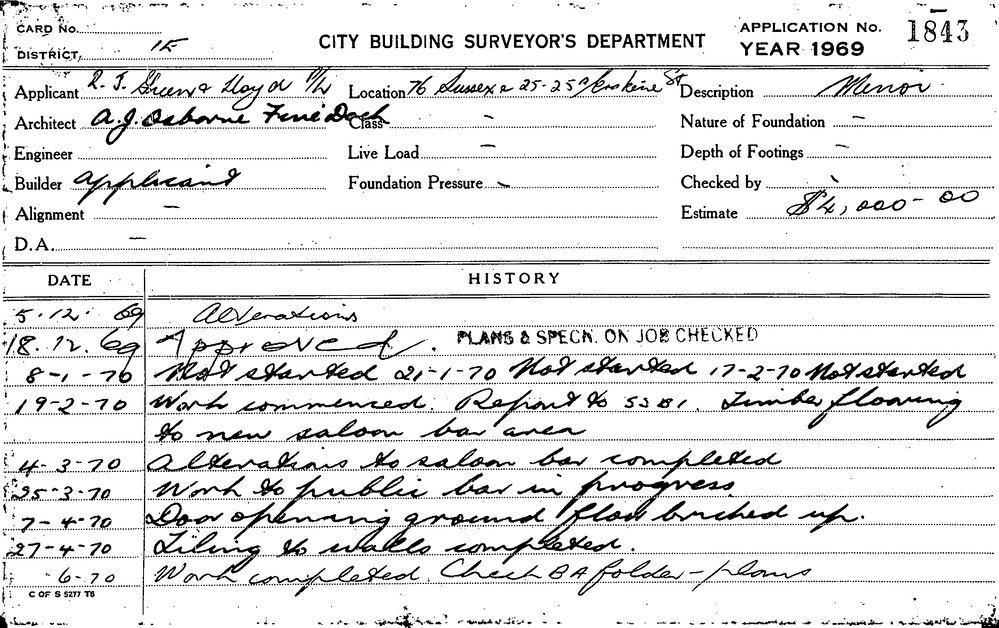 CARD No.
DISTRICT, 1E
CITY BUILDING SURVEYOR'S DEPARTMENT
APPLICATION No. 1843
YEAR 1969
Applicant R. J. Green & Lloyd P/L Location 76 Sussex & 25-25A Erskine St Description Minor
Architect A. J. Osborne Fine Dock Class - Nature of Foundation -
Engineer Live Load - Depth of Footings -
Builder Applicant Foundation Pressure - Checked by
Alignment - Estimate $4,000-00
D.A. -
DATE HISTORY
5.12.69 Alterations
18.12.69 Approved. PLANS & SPECN. ON JOB CHECKED
8-1-70 Not started 21-1-70 Not started 17-2-70 Not started
19-2-70 Work commenced. Report to SSBI. Timber flooring
to new saloon bar area
4-3-70 Alterations to saloon bar completed
25-3-70 Work to public bar in progress
7-4-70 Door opening ground floor bricked up.
27-4-70 Tiling to walls completed.
6-70 Work completed. Check BA folder - plans
C OF S 5277 T8